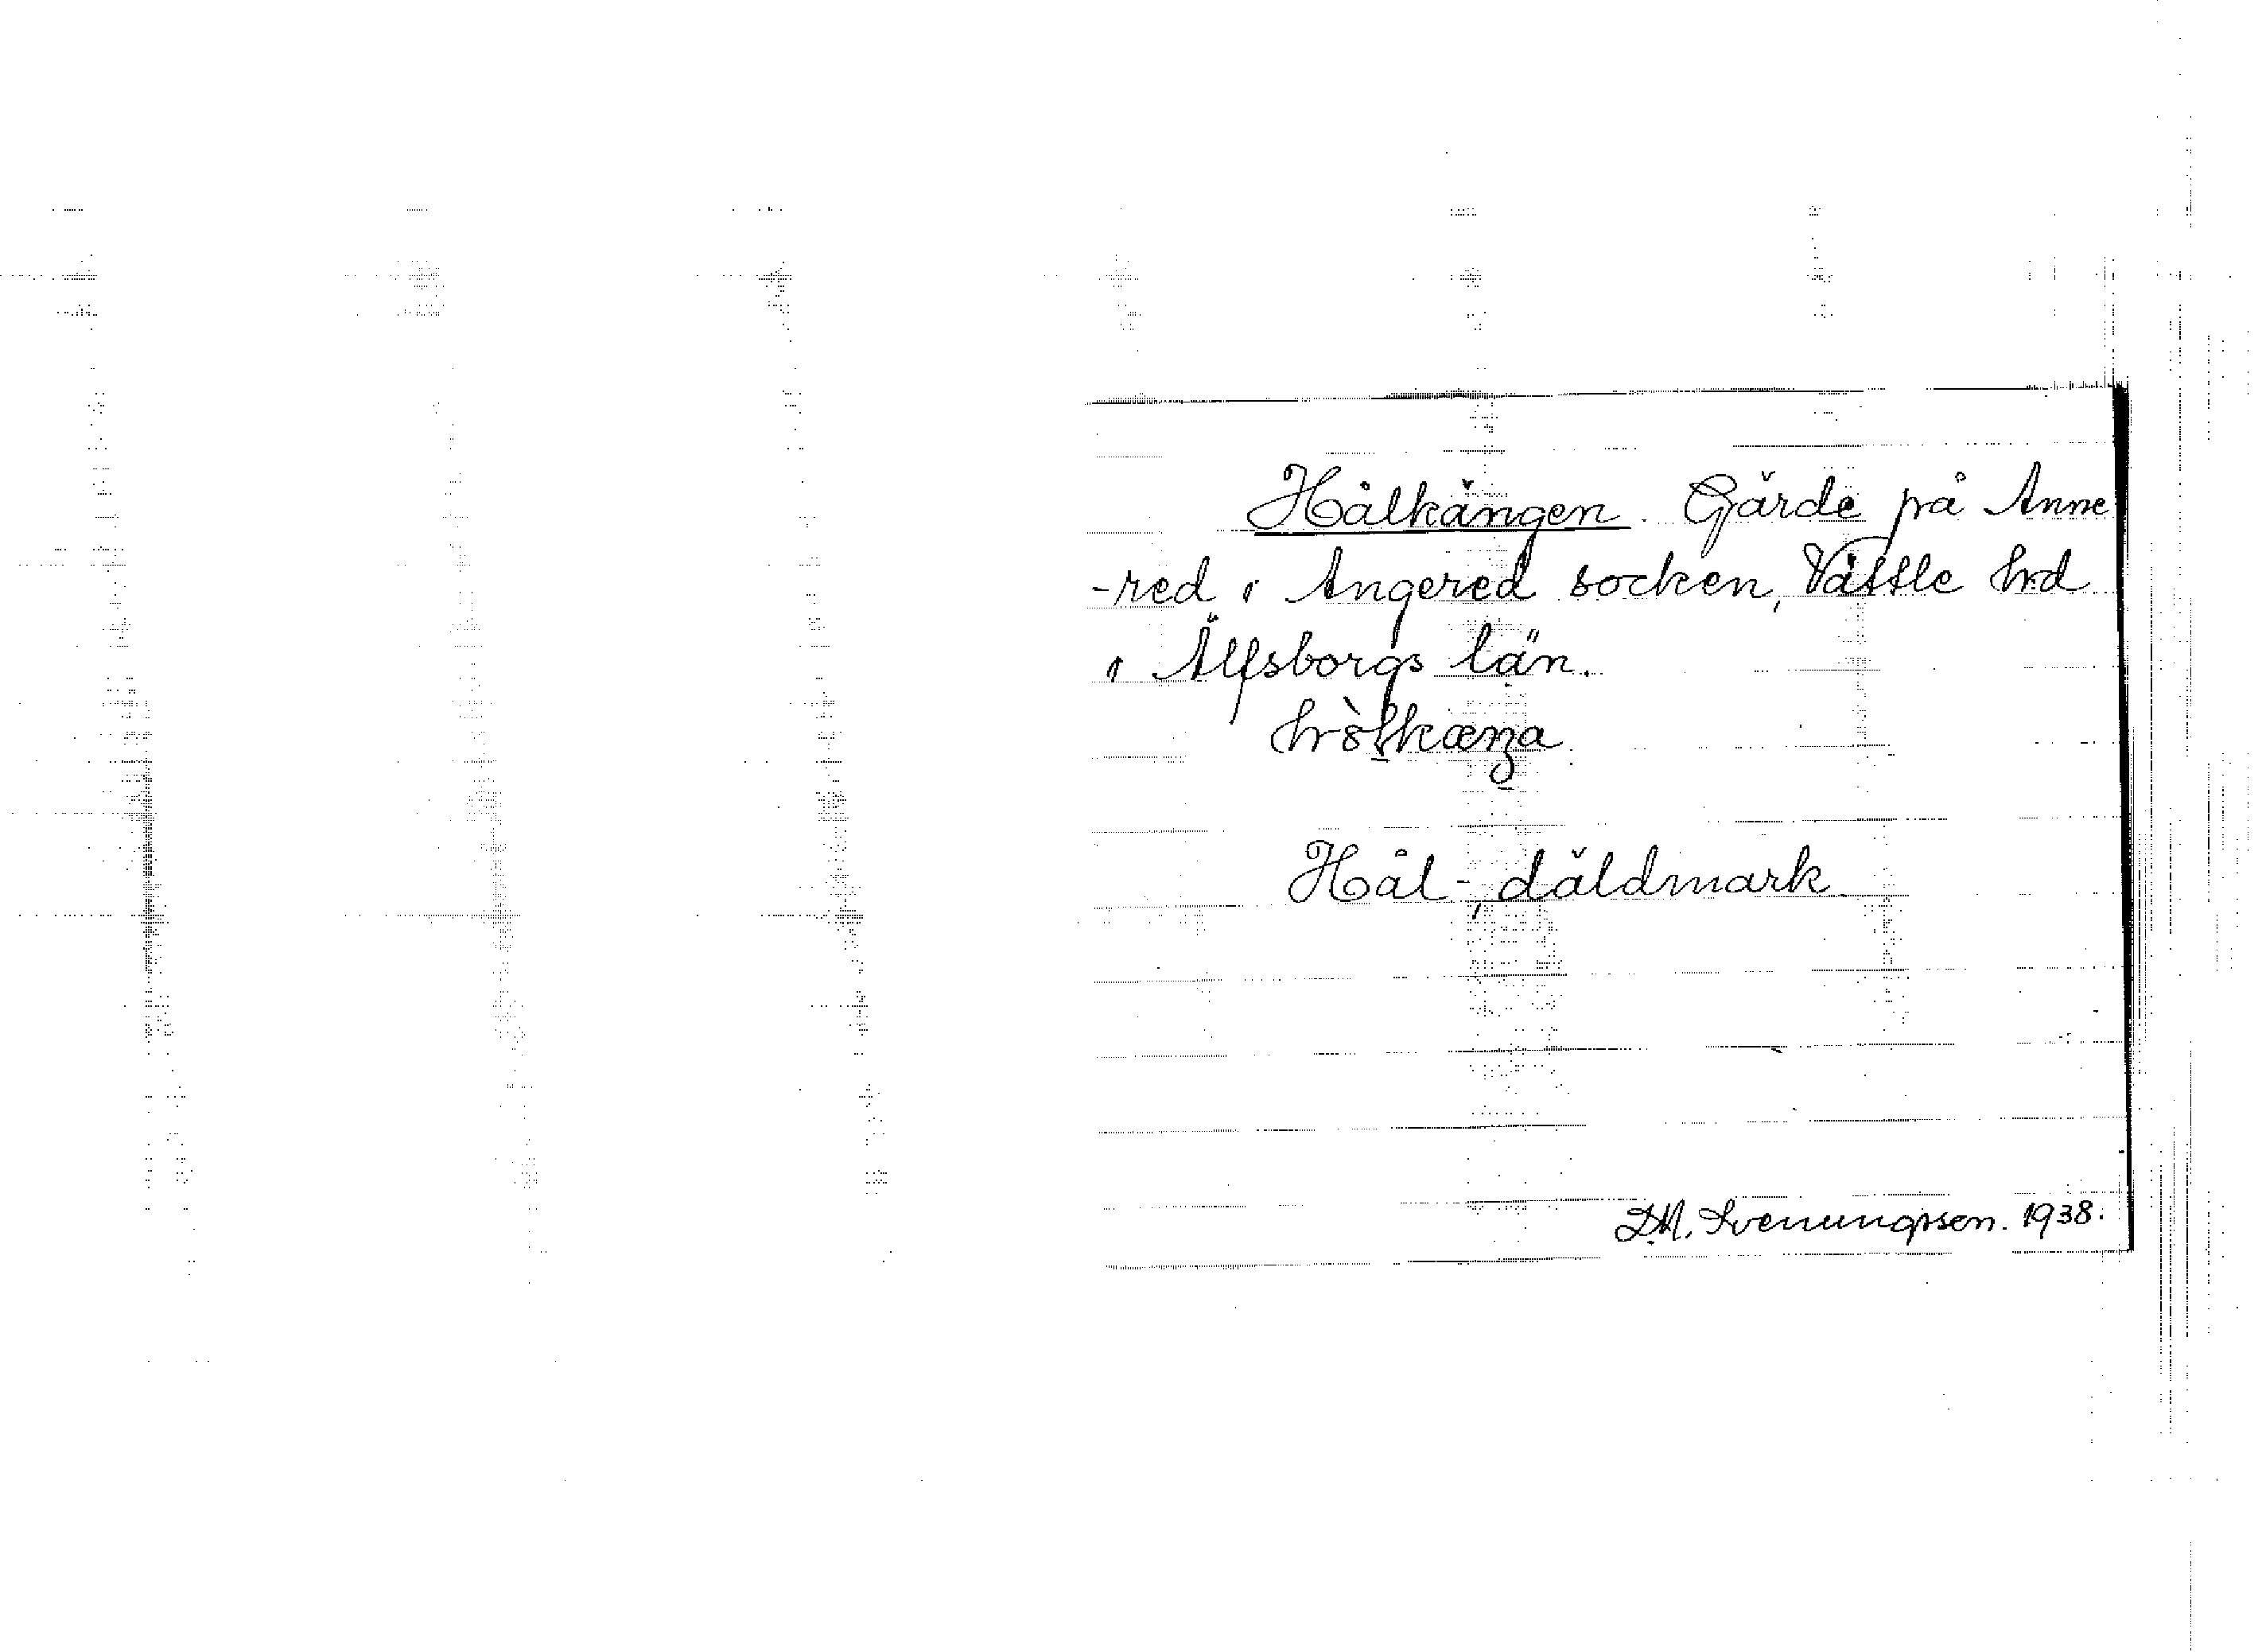 Hålkängen. Gärde på Anne
-red i Angered socken, Vättle hd
i Älfsborgs län.
Hål-, däldmark
Svenungsson. 1938.